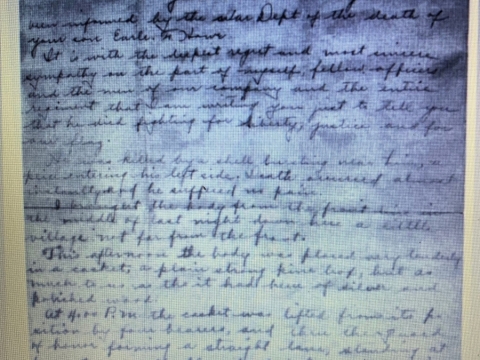 been informed by the War Dept of the death of
your son Earle
It is with the deepest regret and most sincere
sympathy on the part of myself, fellow officers
and the men of our company and the entire
regiment that I am writing you just to tell you
that he died fighting for liberty, justice and for
our flag.
He was killed by a shell bursting near him, a
piece entering his left side. Death occurred almost
instantly and he suffered no pain.
I brought the body from the front line in
the middle of last night down here a little
village not far from the front.
This afternoon the body was placed very tenderly
in a casket, a plain strong pine box, but as
much to us as tho it had been of silver and
polished wood.
At 4:00 P.M. the casket was lifted from its po
sition by four bearers, and thru the guard
of honor forming a straight lane, standing at